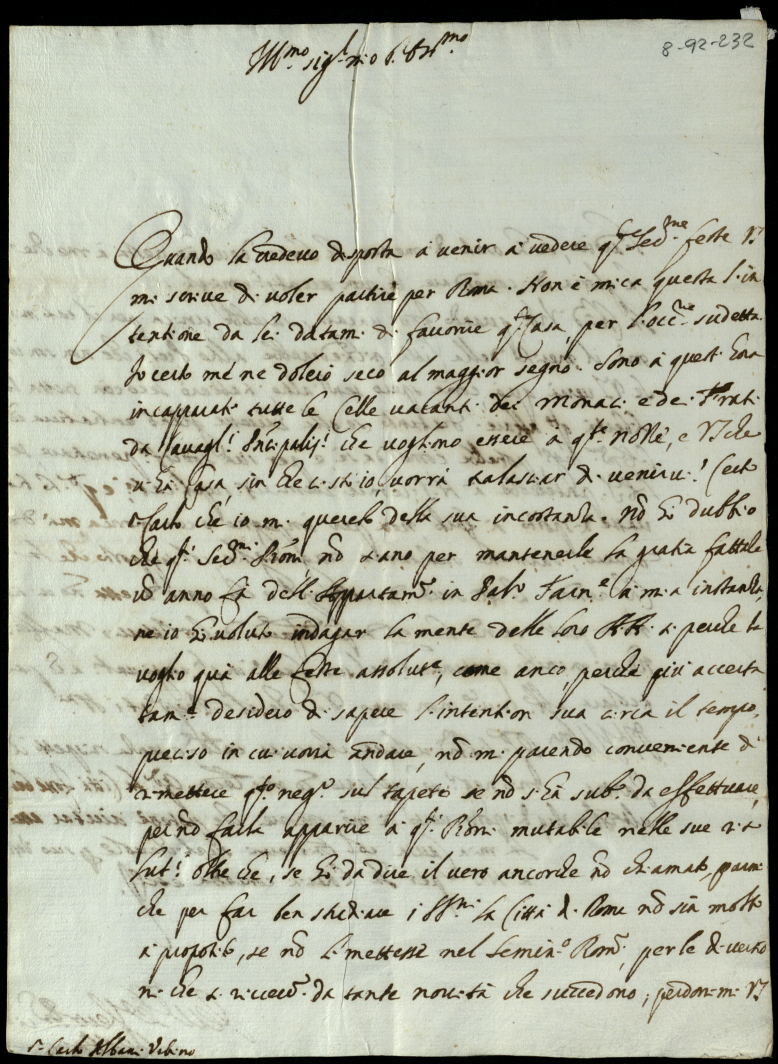 8-92-232
Ill.mo sig.r mio
Quando la credevo disposta a venir a vedere q. feste V.S.
mi scrive di voler partire per Roma. Non è mica questa l'in
tentione da lei datami di favorire q. Casa per l'occ.e sudetta.
Io certo me ne dolerò seco al maggior segno. Sono a quest'hora
incapparati tutte le Celle vacanti dei Monaci e de Frati
da che vogliono essere a q.te Nozze, e V.S. che
v'ha Casa sin che ci sto io, vorrà tralasciar di venirvi! Certo
Carlo che io mi querelo della sua incostanza. Nò hò dubbio
che q. Ser.mi nò siano per mantenerle la gratia fattale
un anno fà dell' Appartam. in Farn.e à mia instanza,
ne io hò voluto indagar la mente delle loro AA. si perche la
voglio quà alle feste assolut.e, come anco, perche più accerta
tam.e desidero di sapere l'intention sua circa il tempo
preciso in cui vorrà andare, nò mi parendo conveniente di
rimettere q.to neg.o sul tapeto se nò s'hà sub.o da effettuare,
per nò farla apparire a q. mutabile nelle sue riso
lut.! Oltre che, se hò da dire il vero ancorche nò chiamato, parmi
che per far ben studiare i la Città di Roma nò sia molto
a proposito, se nò li mettesse nel Semin.o Rom., per le diversio
ni che si ricevon da tante novità che succedono; perdonimi V.S.
S.r Carlo Albani Urbino